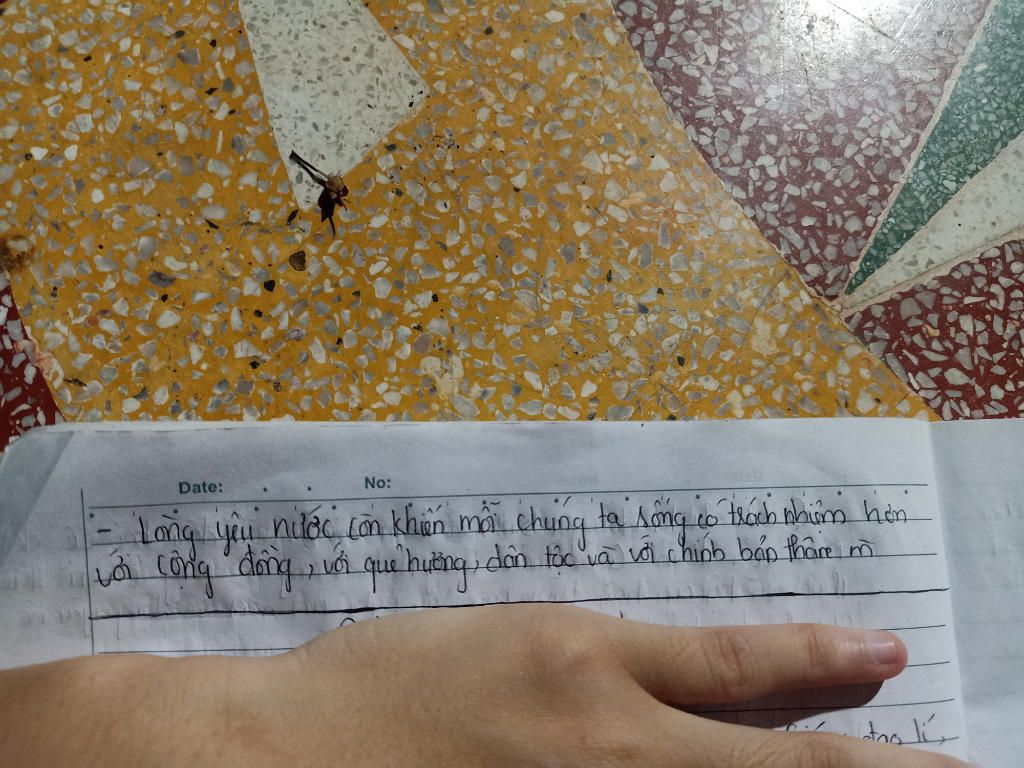 Date: . . No:
- Lòng yêu nước còn khiến mỗi chúng ta sống có trách nhiệm hơn
với cộng đồng, với quê hương, dân tộc và với chính bản thân m